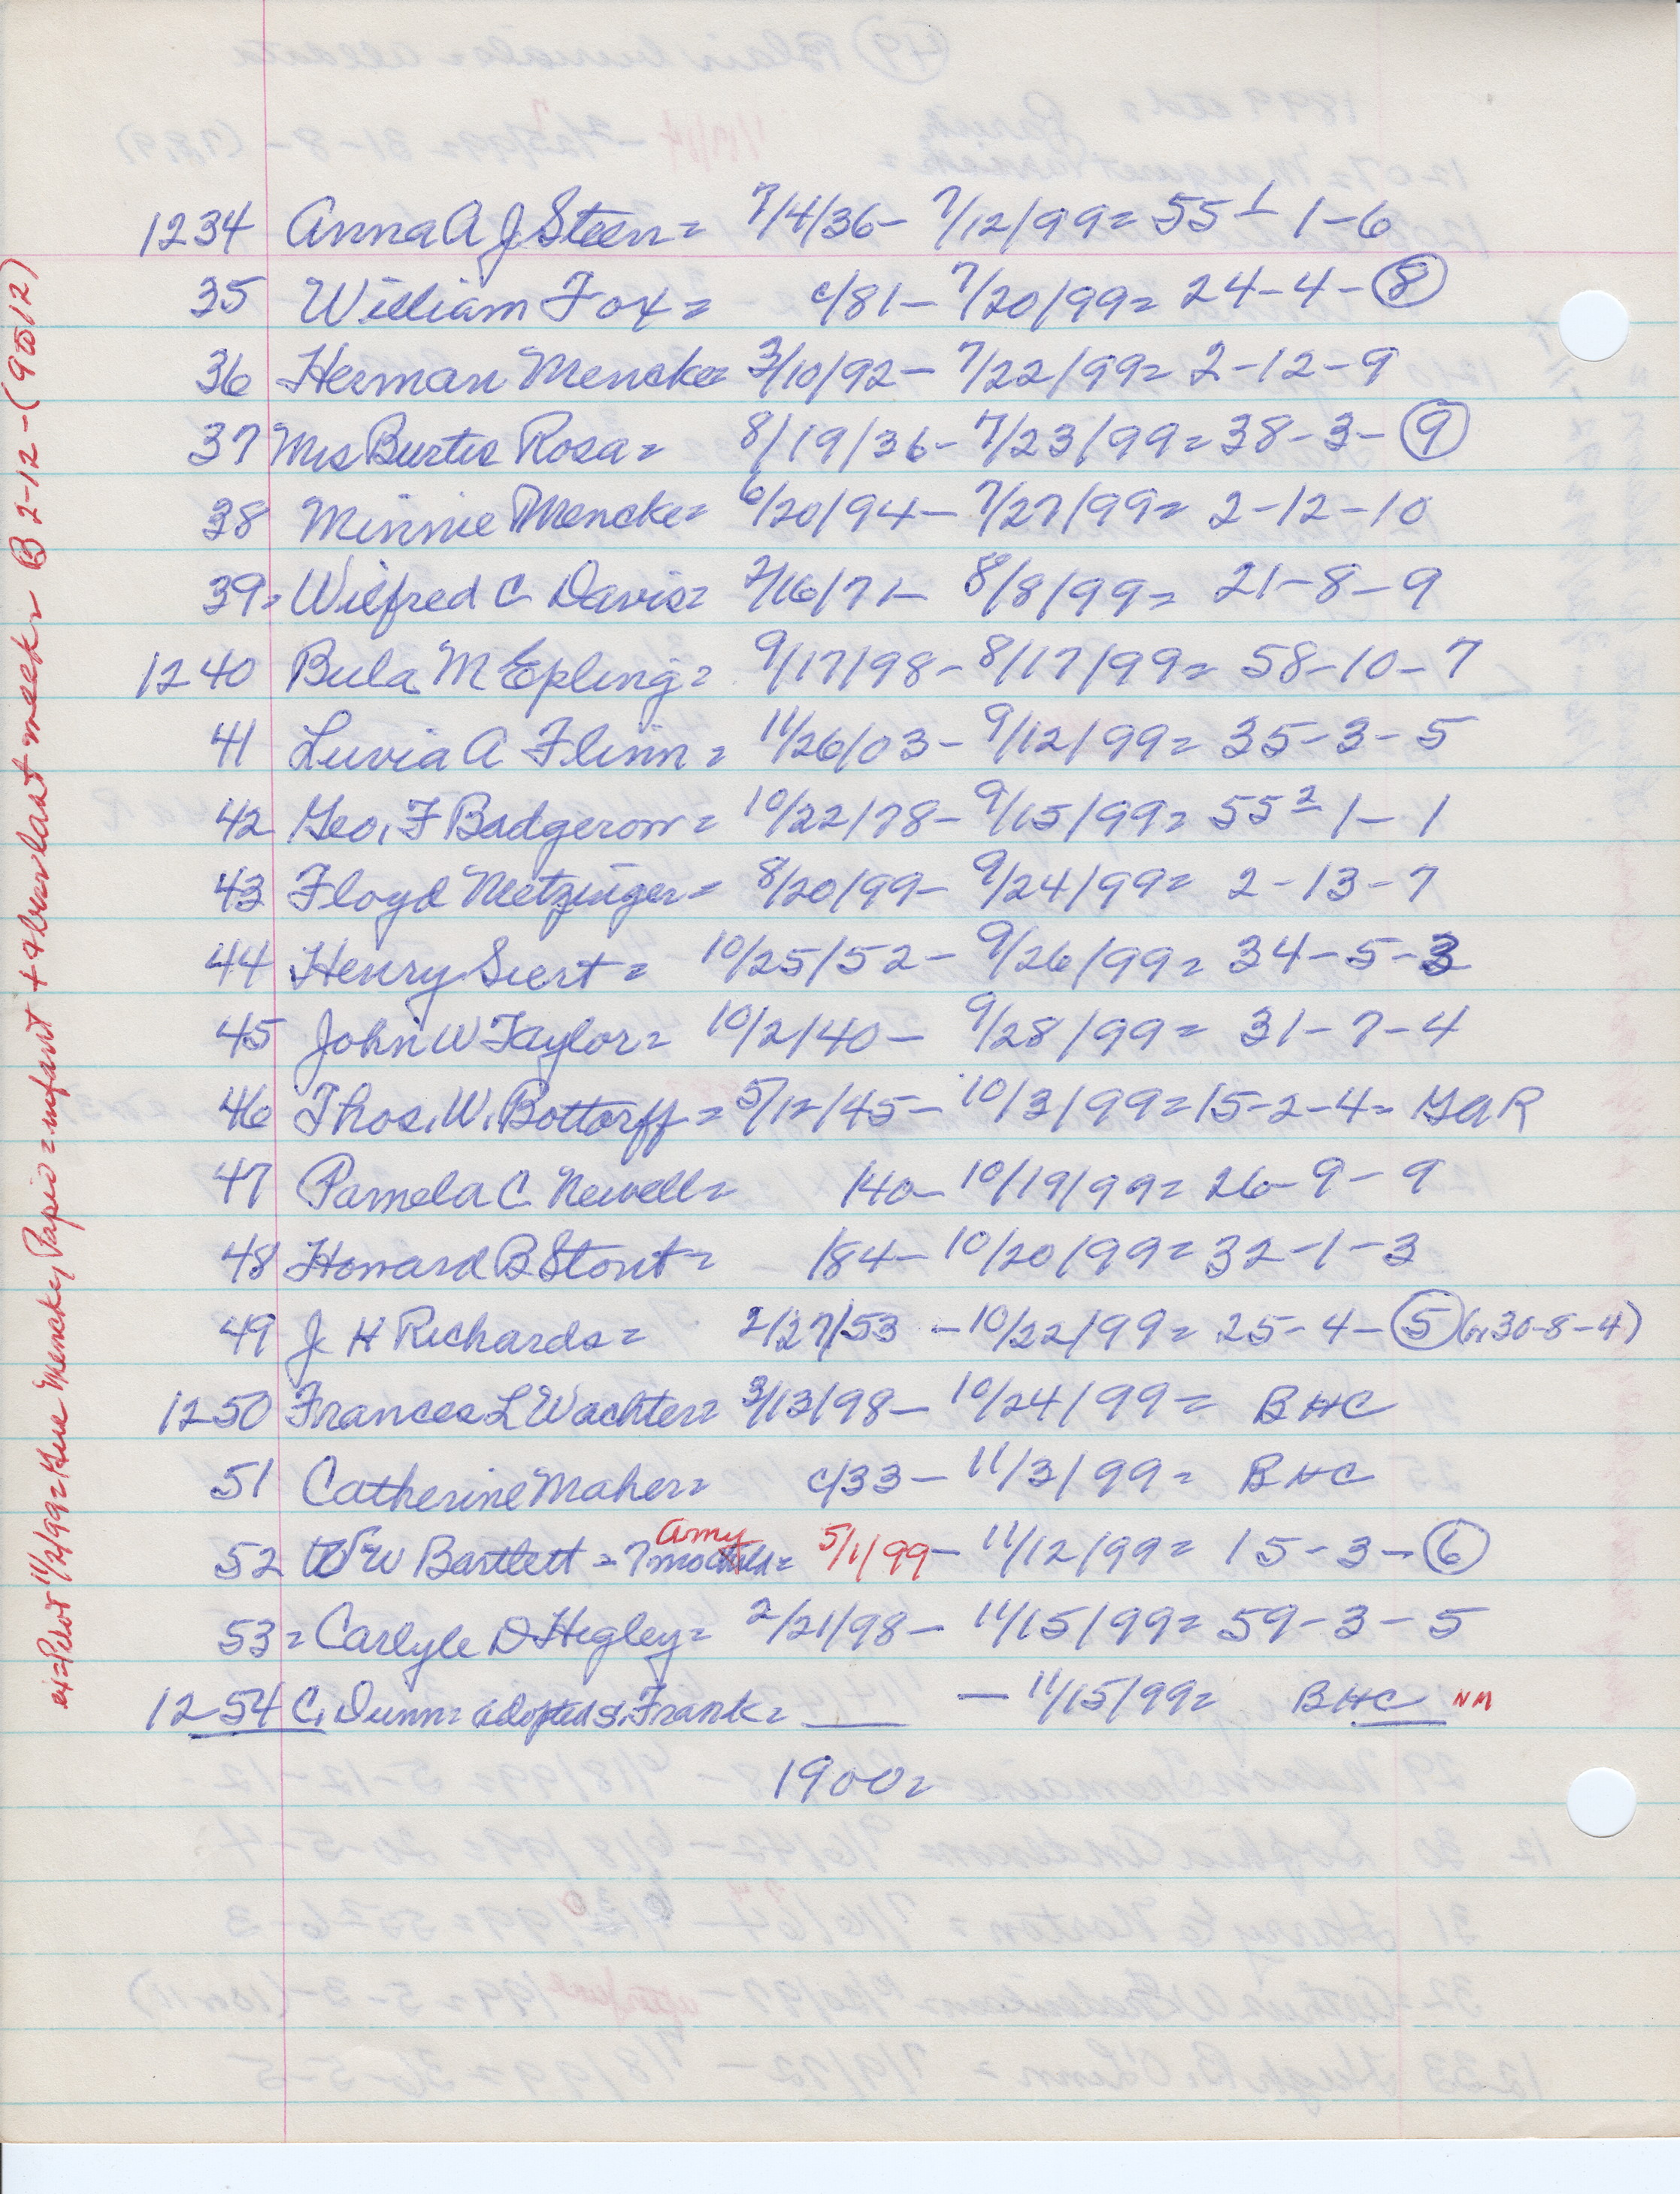 1234 Anna A J Steen = 7/4/36 - 7/12/99 = 55 1 1-6
35 William Fox = c/81 - 7/20/99 = 24-4-8
36 Herman Mencke = 3/10/92 - 7/22/99 = 2-12-9
37 Mrs Burtis Rosa = 8/19/36 - 7/23/99 = 38-3-9
38 Minnie Mencke = 6/20/94 - 7/27/99 = 2-12-10
39 = Wilfred C Davis = 2/16/71 - 8/8/99 = 21-8-9
1240 Bula M Epling = 9/17/98 - 8/17/99 = 58-10-7
41 Luvia A Flinn = 11/26/03 - 9/12/99 = 35-3-5
42 Geo. F Badgerow = 10/22/78 - 9/15/99 = 55 2 1-1
43 Floyd Metzinger = 8/20/99 - 9/24/99 = 2-13-7
44 Henry Siert = 10/25/52 - 9/26/99 = 34-5-3
45 John W Taylor = 10/2/40 - 9/28/99 = 31-7-4
46 Thos. W. Bottorff = 5/12/45 - 10/3/99 = 15-2-4 = GAR
47 Pamela C. Newell = /40 - 10/19/99 = 26-9-9
48 Howard B Stout = /84 - 10/20/99 = 32-1-3
49 J H Richards = 2/27/53 - 10/22/99 = 25-4-5 (or 30-8-4)
1250 Frances L Wachter = 3/13/98 - 10/24/99 = BHC
51 Catherine Maher = c/33 - 11/3/99 = BHC
52 W W Bartlett = 7 mo child = Amy 5/1/99 - 11/12/99 = 15-3-6
53 = Carlyle D Hegley = 2/21/98 - 11/15/99 = 59-3-5
1254 C. Dunn = adopted s. Frank = ___ - 11/15/99 = BHC NM
1900 =
ex=Pilot 11/2/99 = Mencke, Papio = infant + 4 bur last week = B 2-12-(9 to 12)